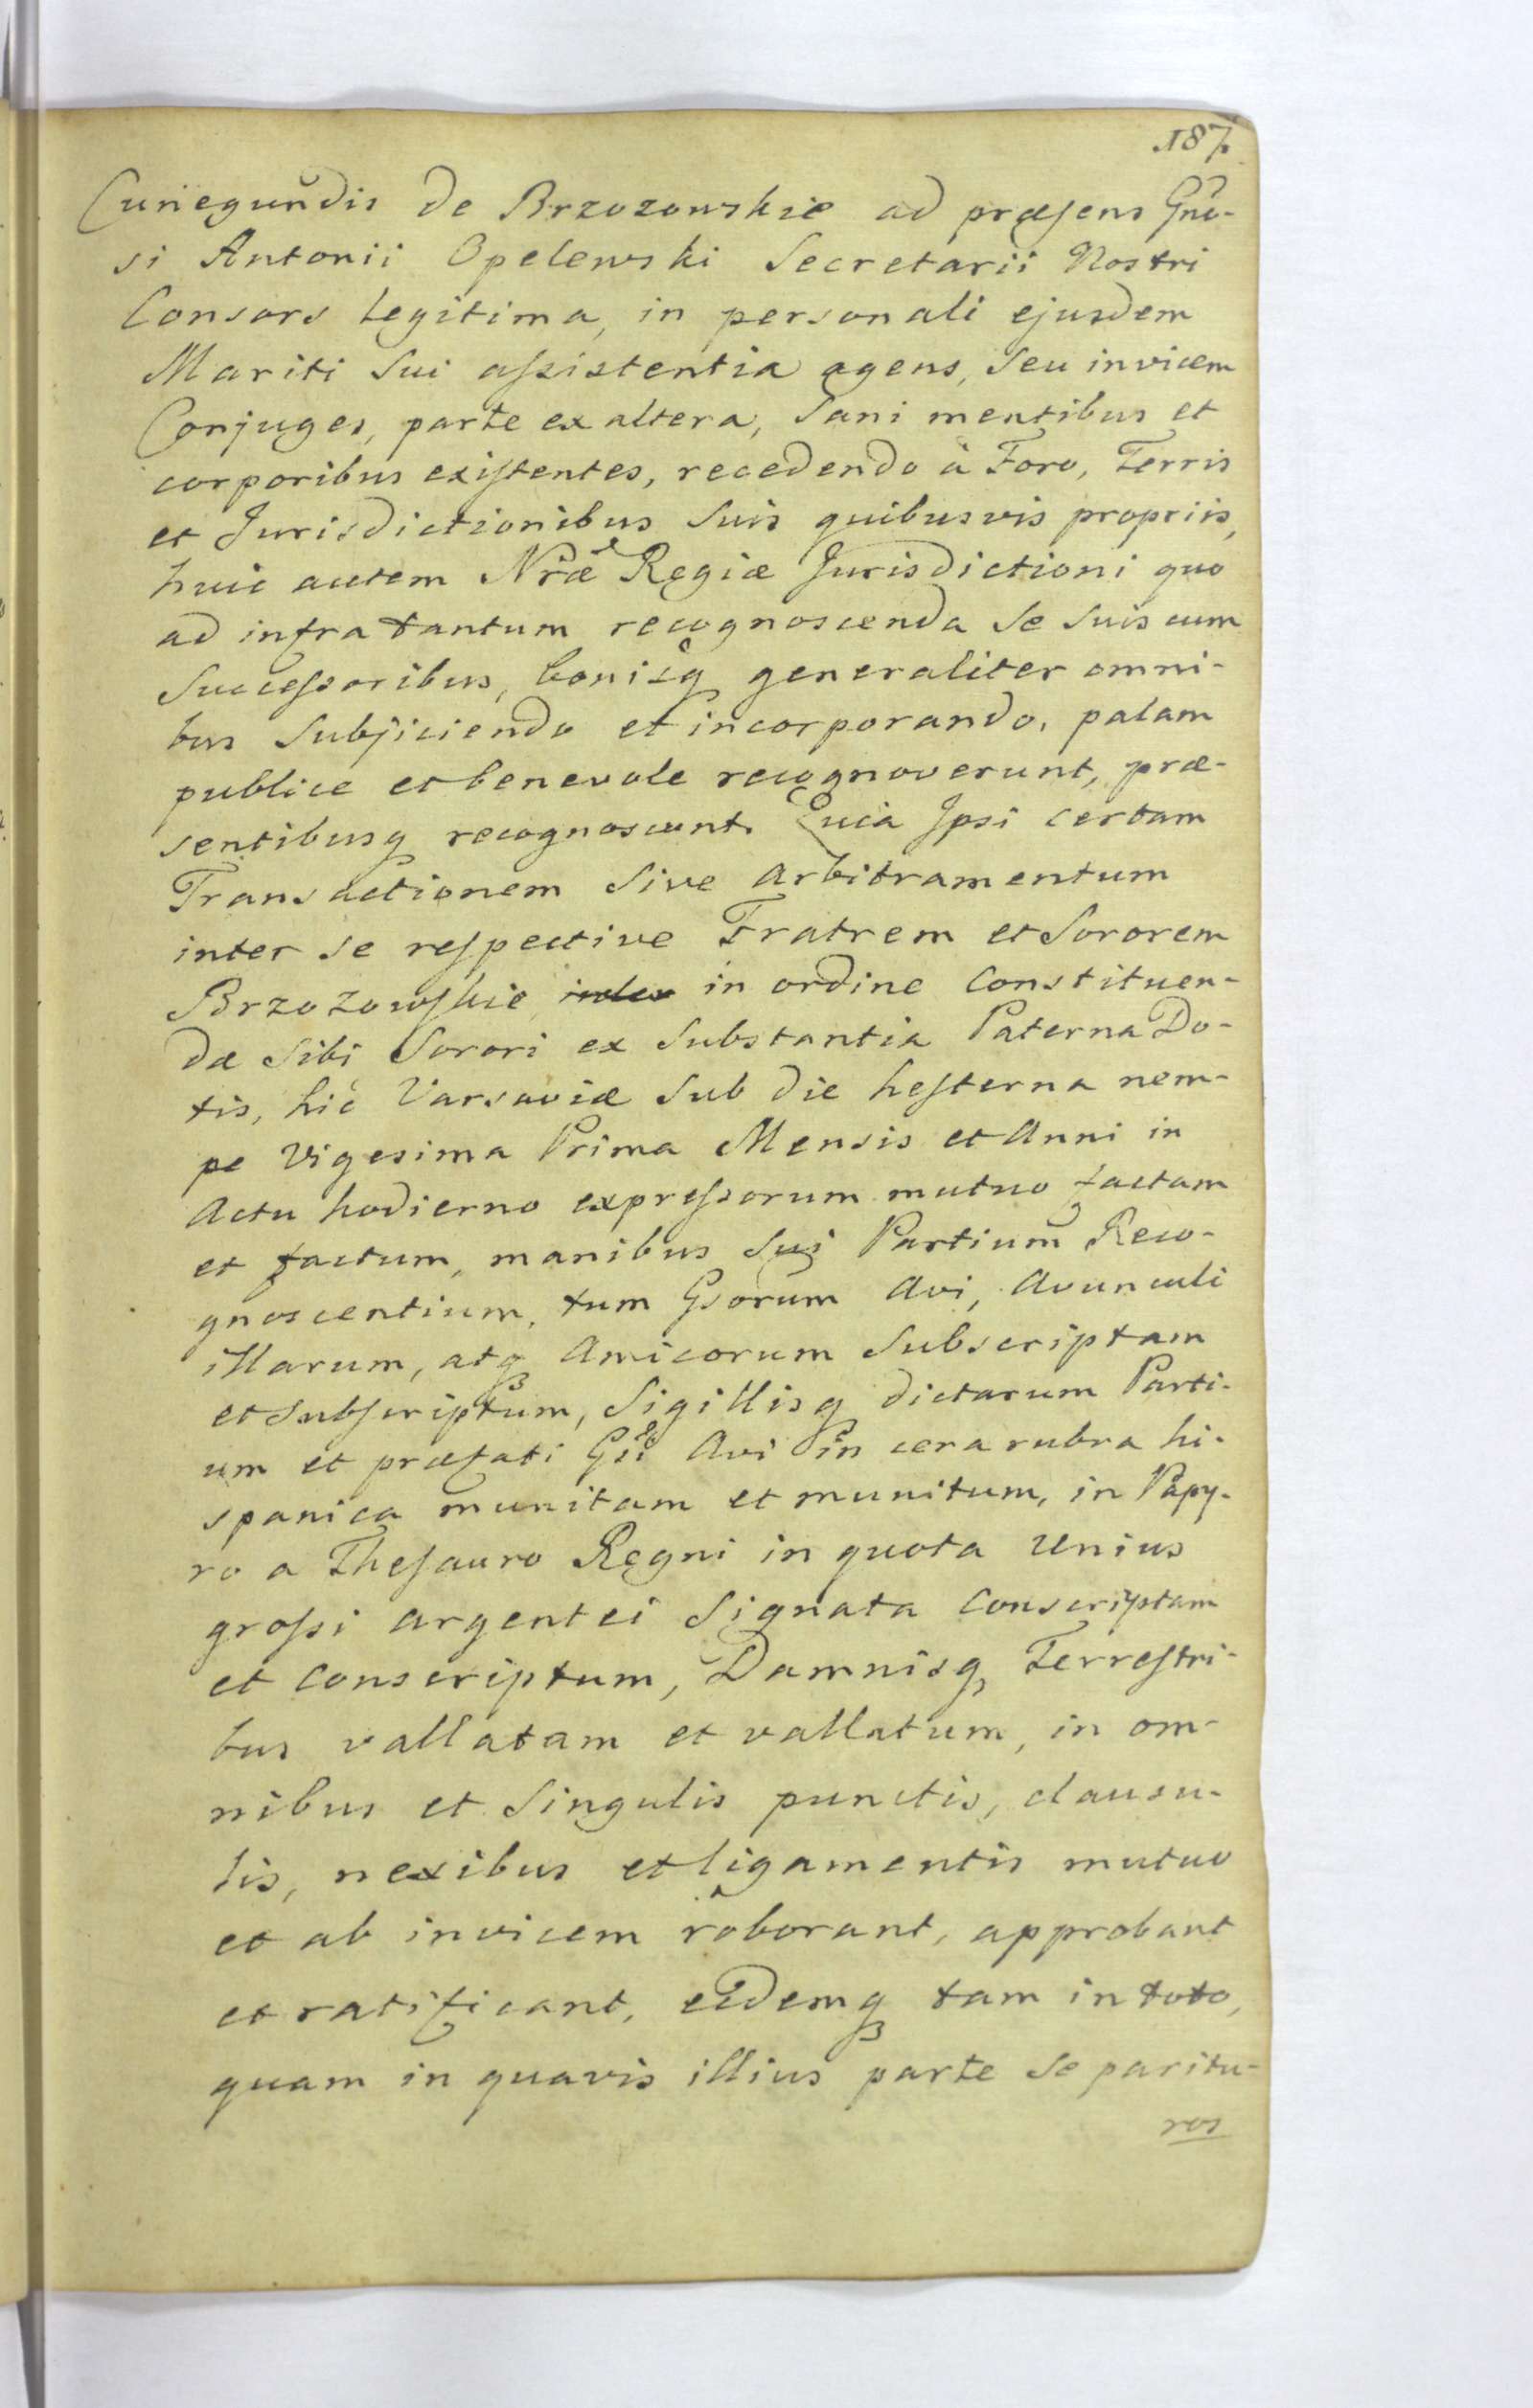 187.
Cunegundis de Brzozowskie ad præsens Gno-
si Antonii Opelewski Secretarii Nostri
Consors legitima, in personali ejusdem
Mariti Sui assistentia agens, Seu invicem
Conjuges, parte ex altera, Sani mentibus et
corporibus existentes, recedendo à Foro, Terris
et Jurisdictionibus Suis quibusvis propriis,
huic autem Nræ Regiæ Jurisdictioni quo
ad infra tantum recognoscenda Se Suis cum
Successoribus, bonisq generaliter omni-
bus Subjiciendo et incorporando, palam
publice et benevole recognoverunt, præ-
sentibusq recognoscunt. Quia Ipsi certam
Transactionem Sive arbitramentum
inter Se respective Fratrem et Sororem
Brzozowskie in ordine Constituen-
dæ Sibi Sorori ex Substantia Paterna Do-
tis, hic Varsaviæ Sub die hesterna nem-
pe Vigesima Prima Mensis et Anni in
Actu hodierno expressorum mutuo factam
et factum, manibus Sui Partium Reco-
gnoscentium, tum Gsorum Avi, Avunculi
illarum, atq Amicorum Subscriptam
et Subscriptum, Sigillisq dictarum Parti-
um et præfati Gsi Avi in cera rubra hi-
spanica munitam et munitum, in Papy-
ro a Thesauro Regni in quota unius
grossi argentei Signata Conscriptam
et conscriptum, Damnisq Terrestri-
bus vallatam et vallatum, in om-
nibus et Singulis punctis, clausu-
lis, nexibus et ligamentis mutuo
et ab invicem roborant, approbant
et ratificant, eidemq tam in toto,
quam in quavis illius parte Se paritu-
ros